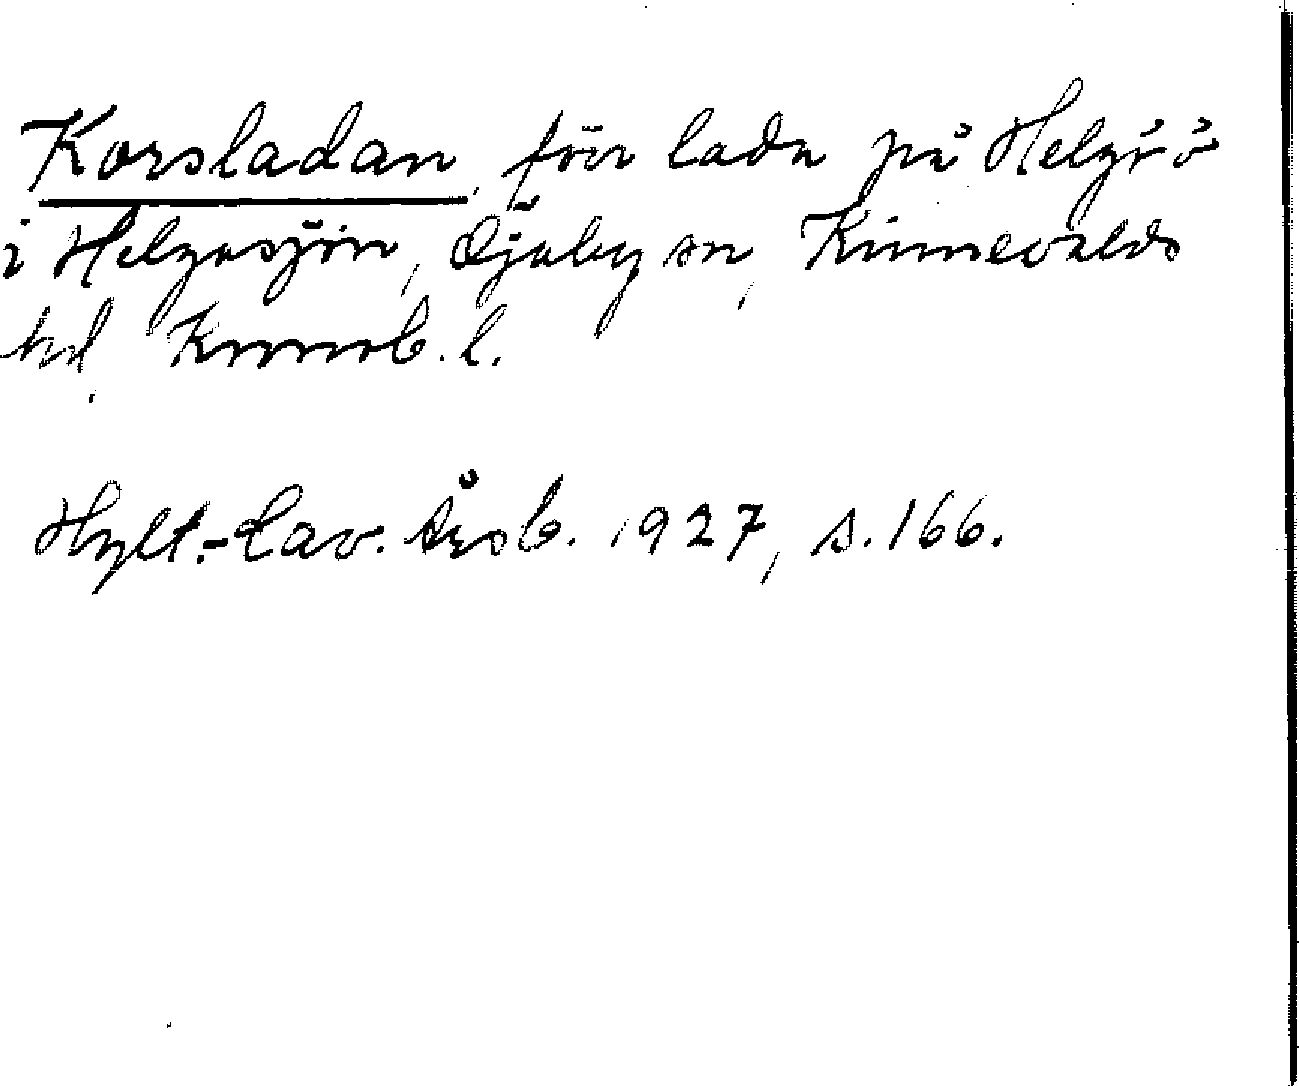 Korsladan, förr lada på Helgö
i Helgasjön, Öjaby sn, Kinnevalds
hd, Kronob. l.
Hylt.-Cav. Årsb. 1927, s. 166.